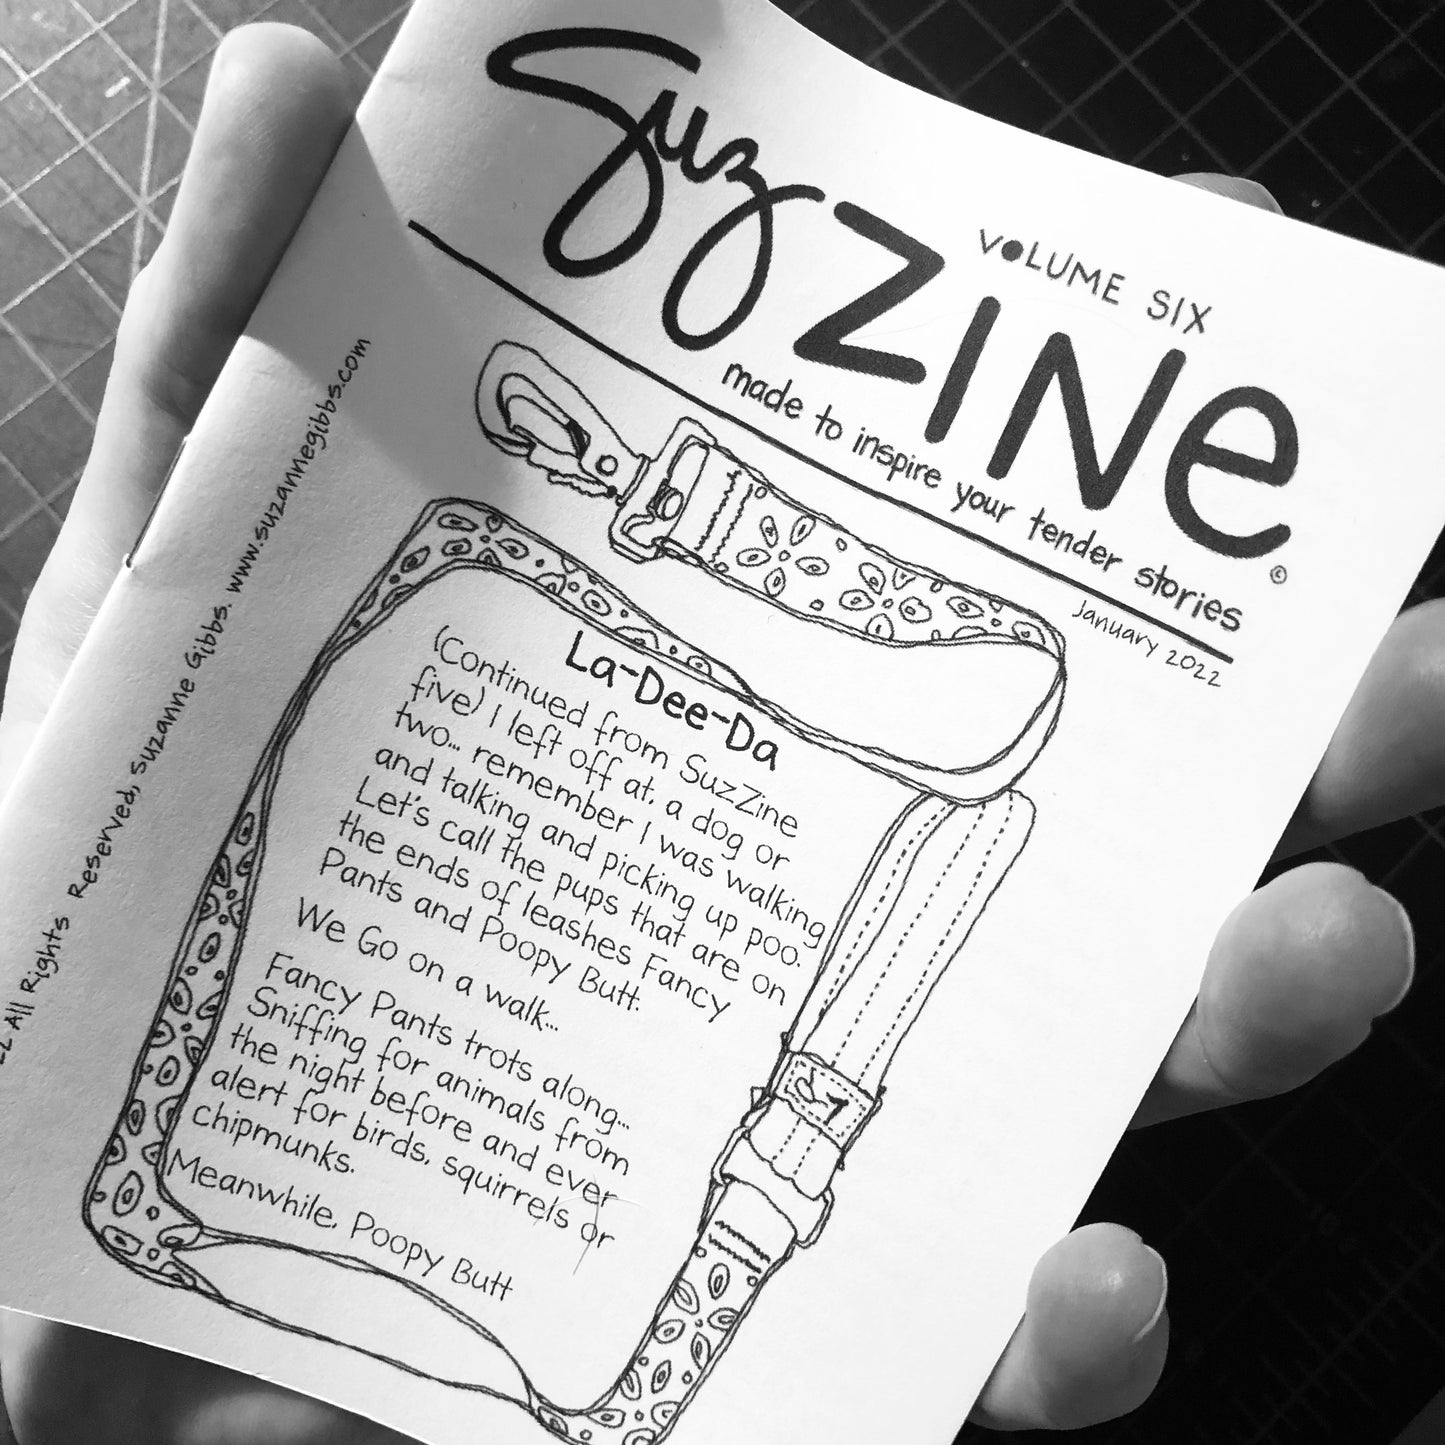 SuzZINe
VOLUME SIX
made to inspire your tender stories
©
January 2022
La-Dee-Da
(Continued from SuzZine
five) I left off at, a dog or
two... remember I was walking
and talking and picking up poo.
Let's call the pups that are on
the ends of leashes Fancy
Pants and Poopy Butt.
We Go on a walk...
Fancy Pants trots along...
Sniffing for animals from
the night before and ever
alert for birds, squirrels or
chipmunks.
Meanwhile, Poopy Butt
All Rights Reserved, Suzanne Gibbs. www.suzannegibbs.com